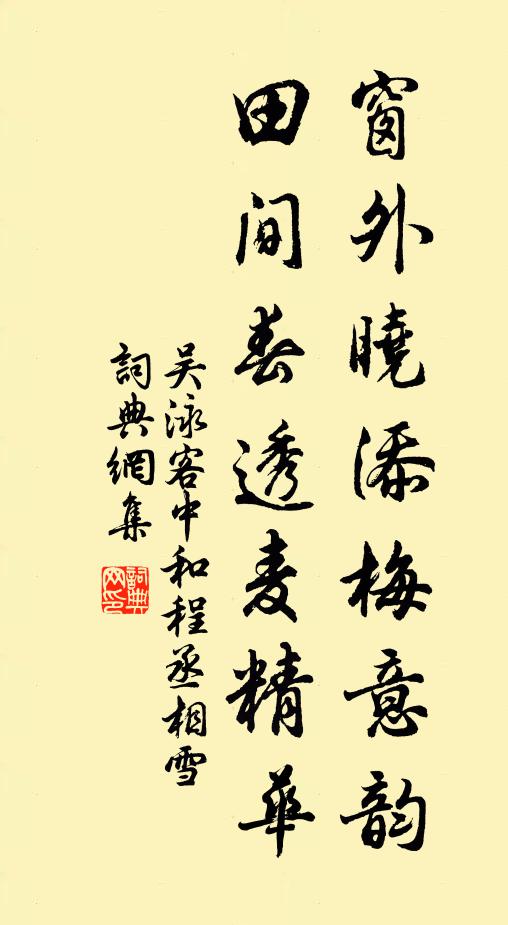 窗外曉添梅意韵
田间春透麦精華
吴泳客中和程丞相雪
詞典網集
詞典网印